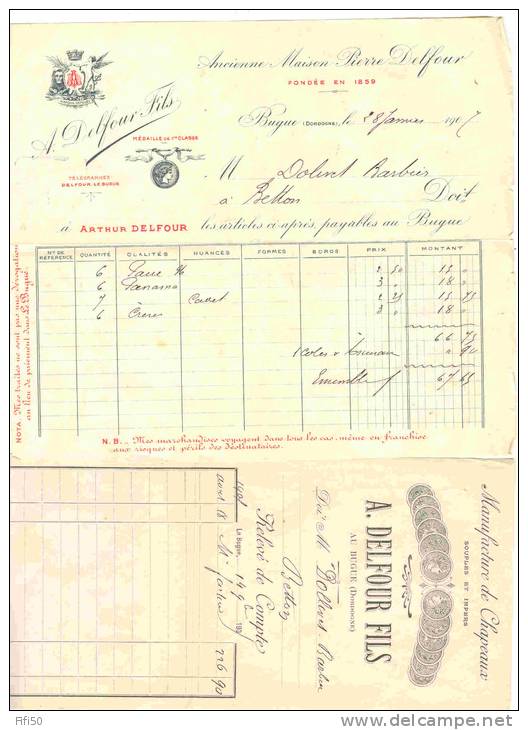 Ancienne Maison Pierre Delfour
FONDÉE EN 1859
A. Delfour Fils
MÉDAILLE DE 1re CLASSE
TÉLÉGRAMMES
DELFOUR. LE BUGUE
Bugue (DORDOGNE), le 28 Janvier 1907
M Dolivet Barbier
à Betton Doit
à ARTHUR DELFOUR les articles ci-après, payables au Bugue
Nos DE RÉFÉRENCE QUANTITÉ QUALITÉS NUANCES FORMES BORDS PRIX MONTANT
6 2 50 15 "
6 Panama 3 " 18 "
7 2 25 15 75
6 3 " 18 "
66 75
1 colis " 90
Ensemble 67 65
NOTA: Mes traites ne sont pas une dérogation
au lieu de paiement dans Le Bugue
N.B. _ Mes marchandises voyagent dans tous les cas, même en franchise
aux risques et périls des destinataires.
Manufacture de Chapeaux
SOUPLES ET IMPERS
A. DELFOUR FILS
AU BUGUE (DORDOGNE)
Doit M
Betton
Relevé de Compte
Le Bugue, 14 9 190
Avril 18 Mr facture 226 90
Rfi50
www.delcampe.net